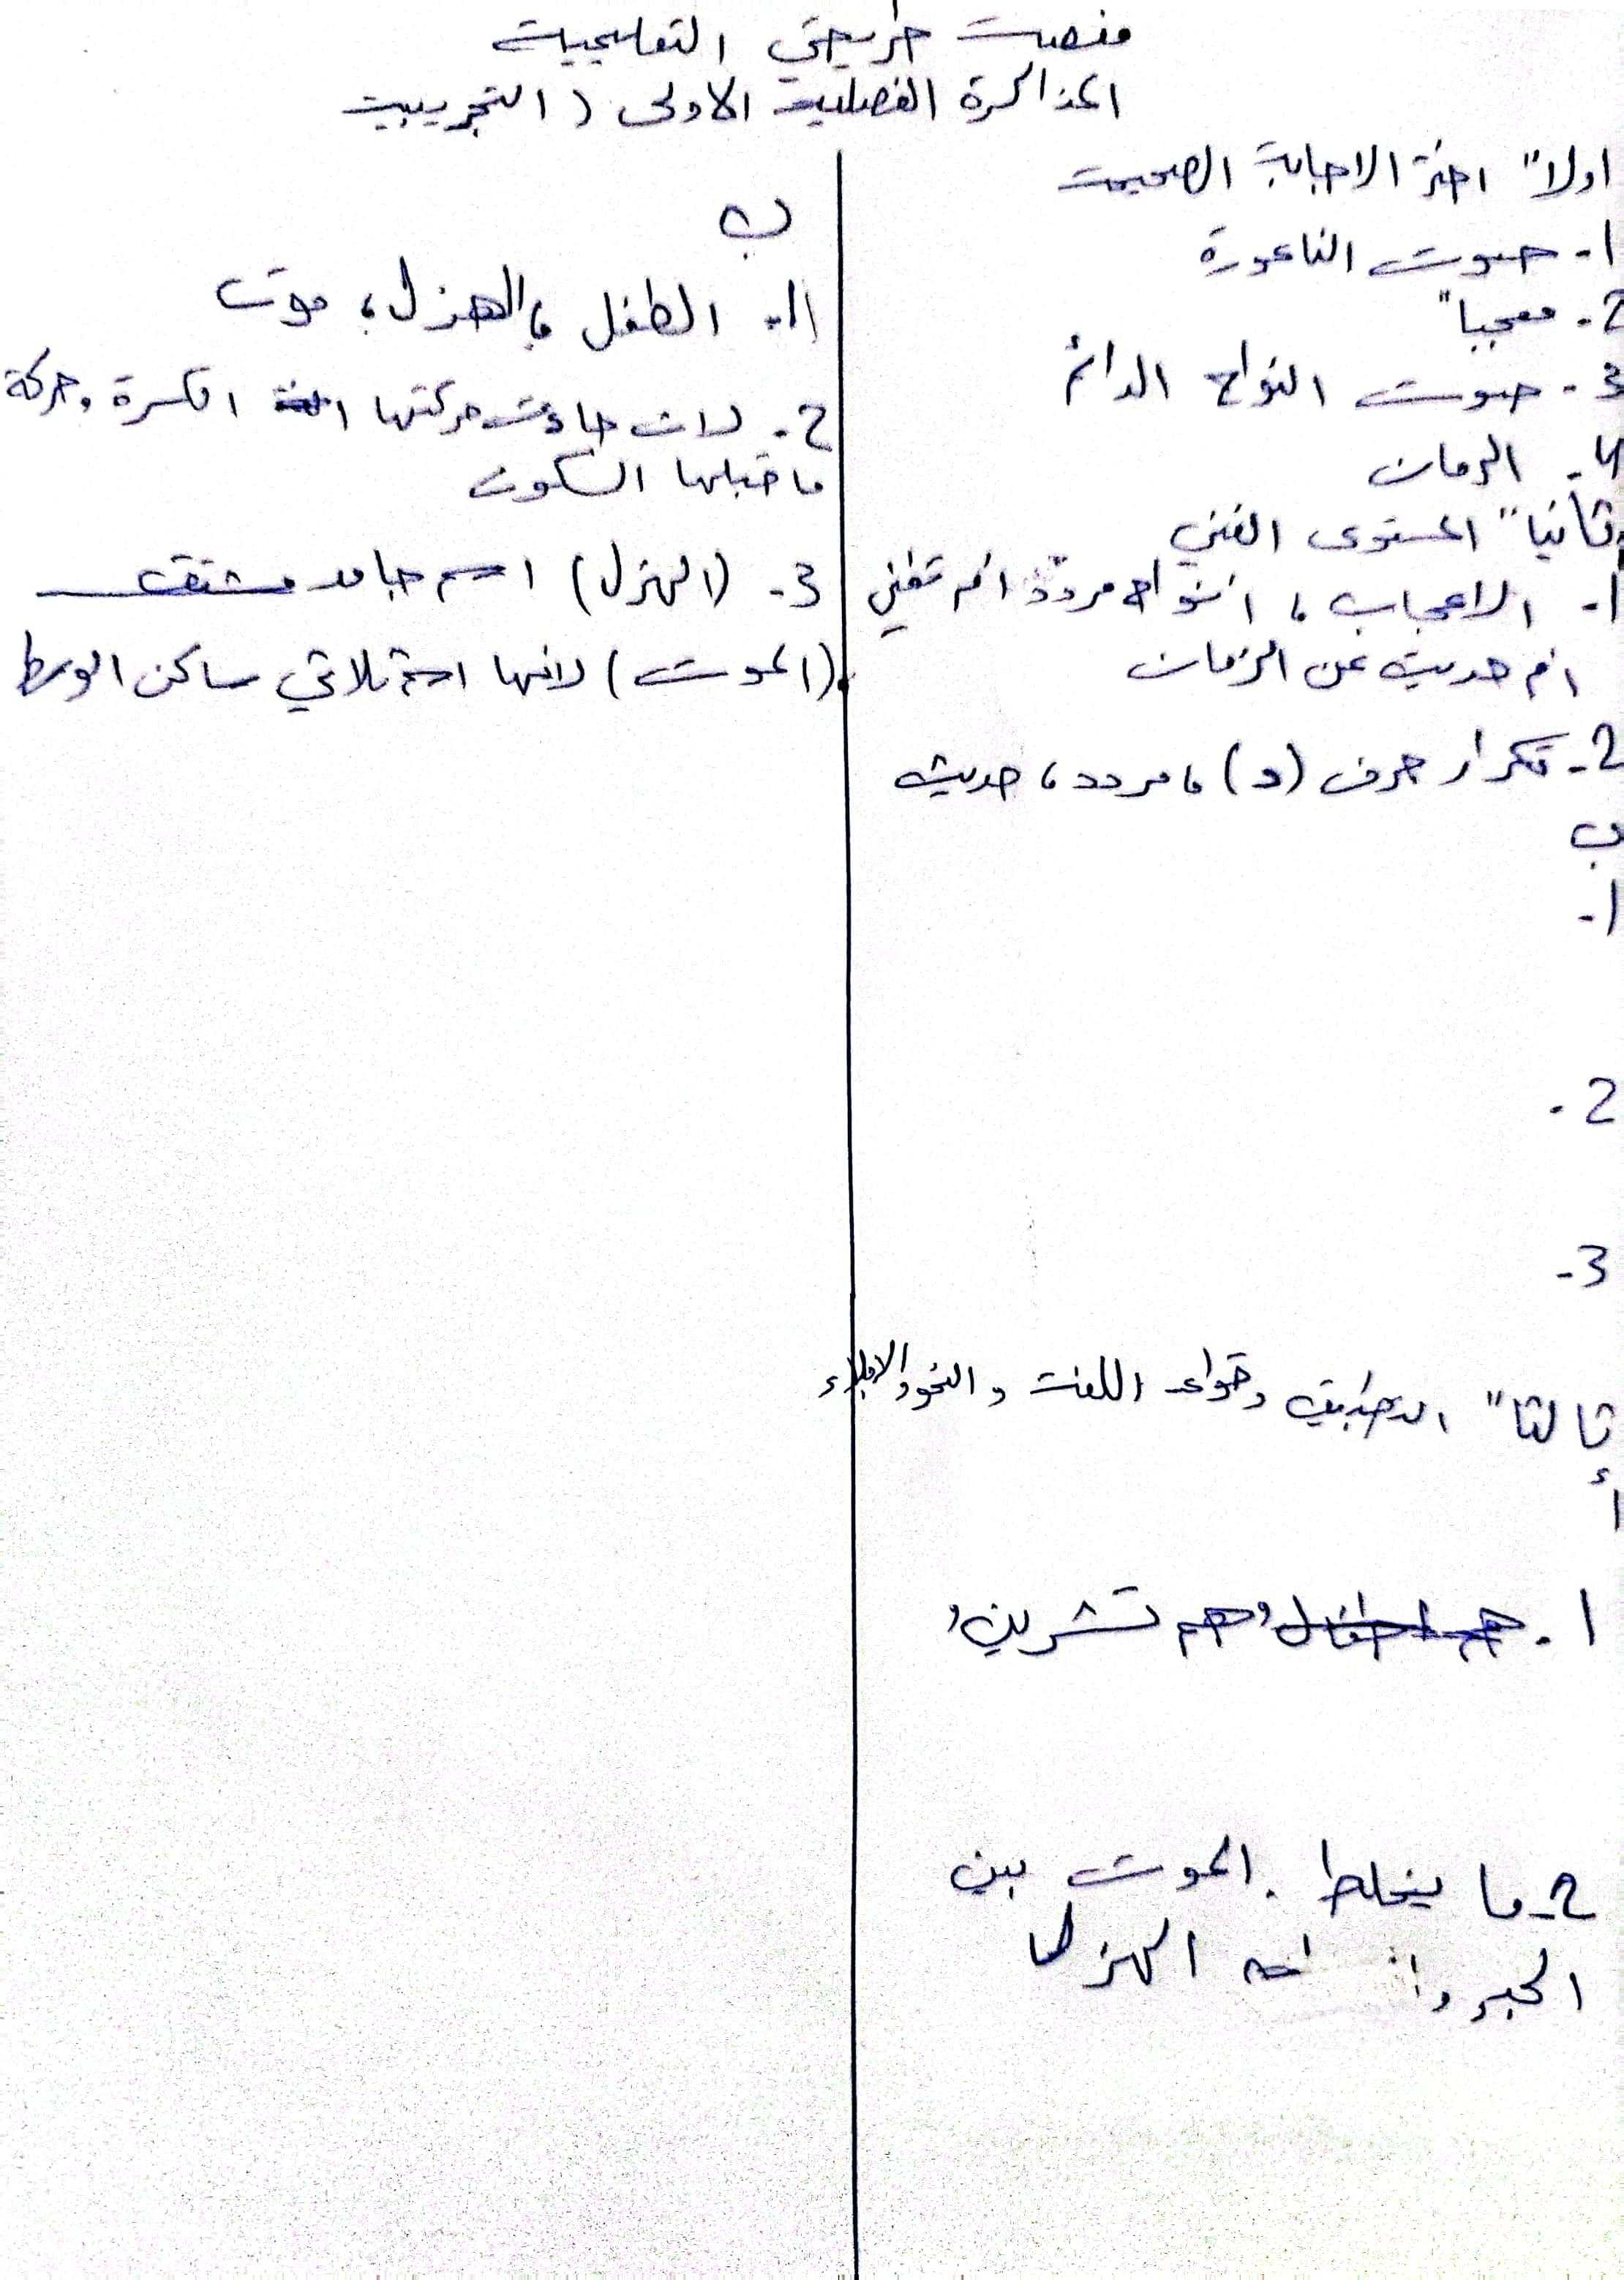 منصت طريحي التعليميت
المذاكرة الفصليت الاولى ( التجريبيت
اولا" اختر الاجابة الصحيحت
1- صوت الناعورة
2- معجبا"
3- صوت النواح الدائم
4- الزمان
ثانيا" المستوى الفني
1- الاعجاب ، انواح مردّد ام تغني
ام حديث عن الزمان
2- تكرار حرف (د) ، مردد ، حديث
ب
1-
2-
3-
ثالثا" وقواعد اللغت و النحو والاملاء
أ
1- هم اطفال وهم تشرين
2- ما يخلط الموت بين
الجبر الهزل
ب
1- الطفل ، الهزل ، موت
2- لان حركتها الكسرة وحركة
ما قبلها السكون
3- (الهزل) اسم جامد مشتق
(الموت) لانها ثلاثي ساكن الوسط